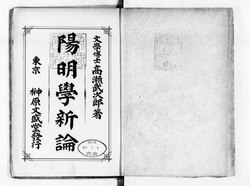 文學博士 高瀨武次郎著
陽明學新論
東京 榊原文盛堂發行